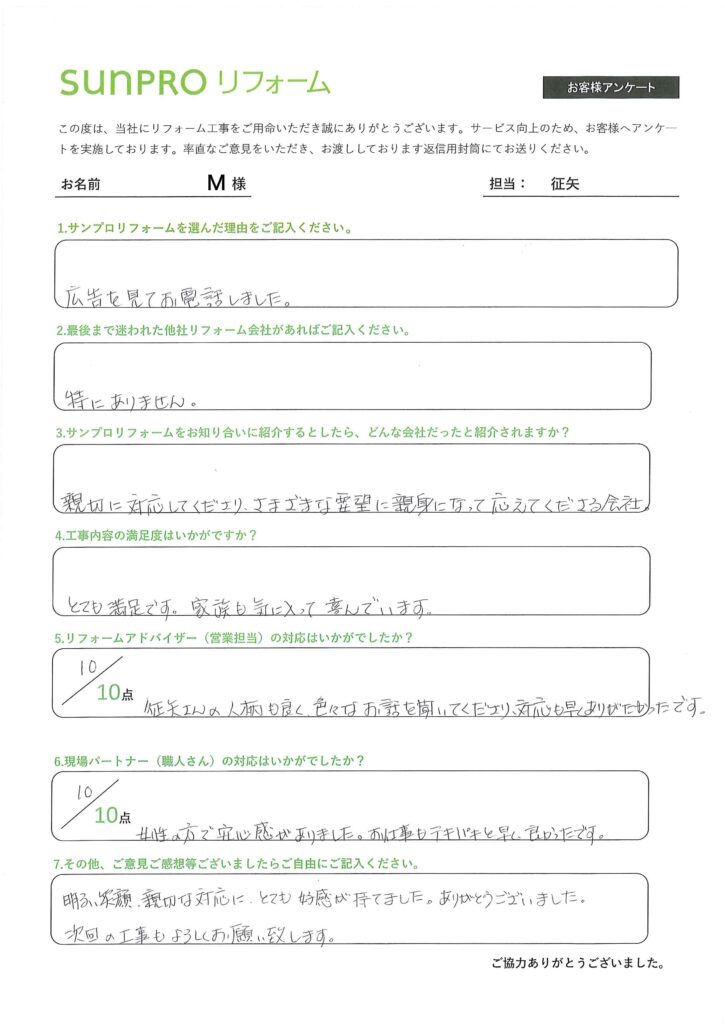 SunPRO リフォーム
お客様アンケート
この度は、当社にリフォーム工事をご用命いただき誠にありがとうございます。サービス向上のため、お客様へアンケー
トを実施しております。率直なご意見をいただき、お渡ししております返信用封筒にてお送りください。
お名前 M 様 担当： 征矢
1.サンプロリフォームを選んだ理由をご記入ください。
広告を見てお電話しました。
2.最後まで迷われた他社リフォーム会社があればご記入ください。
特にありません。
3.サンプロリフォームをお知り合いに紹介するとしたら、どんな会社だったと紹介されますか？
親切に対応してくださり、さまざまな要望に親身になって応えてくださる会社。
4.工事内容の満足度はいかがですか？
とても満足です。家族も気に入って喜んでいます。
5.リフォームアドバイザー（営業担当）の対応はいかがでしたか？
10／10点
征矢さんの人柄も良く、色々なお話を聞いてくださり、対応も早くありがたかったです。
6.現場パートナー（職人さん）の対応はいかがでしたか？
10／10点
女性の方で安心感がありました。お仕事もテキパキと早く、良かったです。
7.その他、ご意見ご感想等ございましたらご自由にご記入ください。
明るい笑顔、親切な対応に、とても好感が持てました。ありがとうございました。
次回の工事もよろしくお願い致します。
ご協力ありがとうございました。